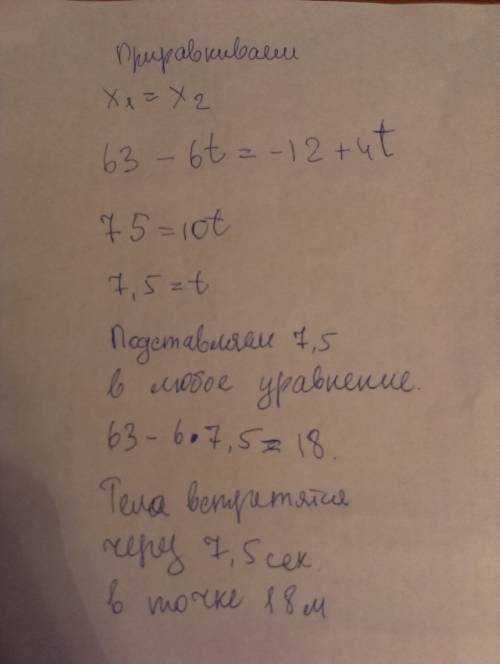 Приравниваем
x₁ = x₂
63 - 6t = -12 + 4t
75 = 10t
7,5 = t
Подставляем 7,5
в любое уравнение.
63 - 6 • 7,5 = 18.
Тела встретятся
через 7,5 сек.
в точке 18 м